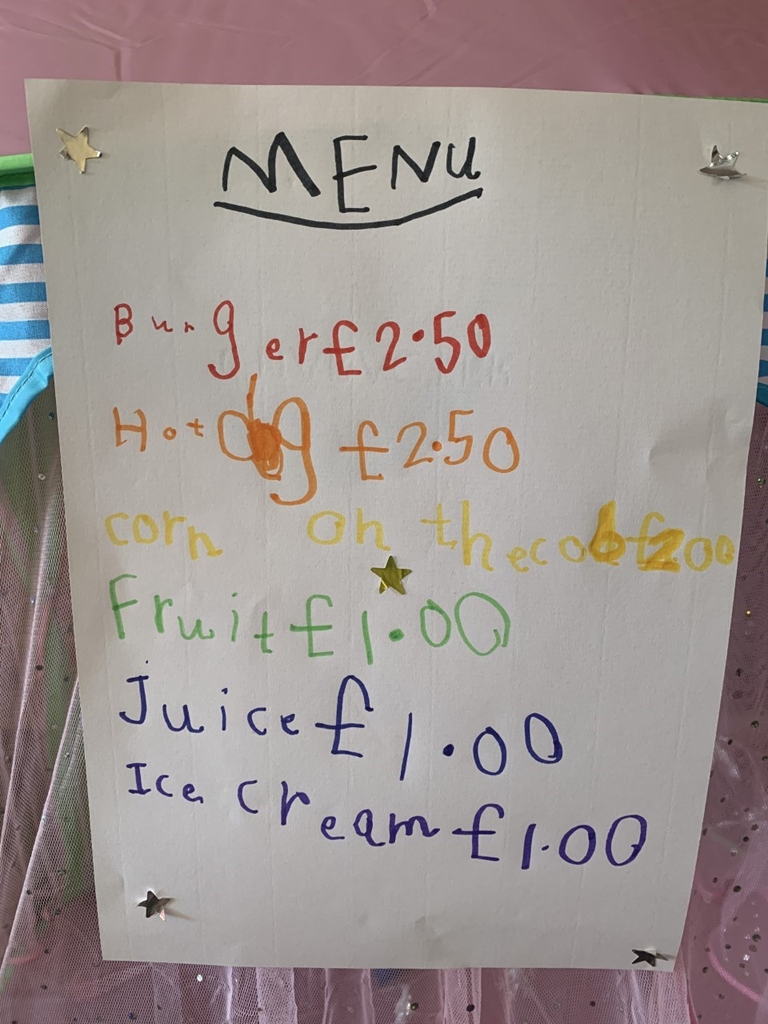 MENU
Burger £2.50
Hot dog £2.50
corn on the cob £2.00
Fruit £1.00
Juice £1.00
Ice cream £1.00